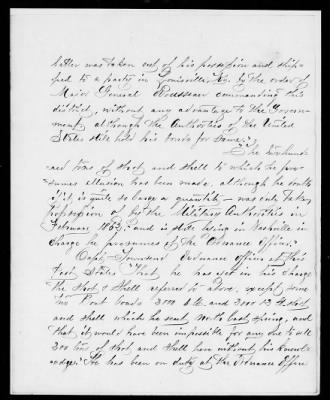 latter was taken out of his possession and ship-
ped to a party in Louisville Ky. by the order of
Major General Rousseau commanding this
district, without any advantage to the Govern-
ment, although the Authorities of the United
States still hold his bonds for same."
"The two hund-
red tons of Shot and Shell to which he pre-
sumes allusion has been made, although he doubts
if it is quite so large a quantity – was only taken
possession of by the Military Authorities in
February 1863, and is still lying in Nashville in
charge he presumes of the Ordnance Officer."
Capt. Townsend Ordnance officer at this
Post States "That, he has yet in his charge
the Shot & Shell referred to above, except some
two Boat loads 3000 & 3000 12 Pdr Shot
and Shell which he sent North last Spring, and
that it would have been impossible for any one to sell
200 tons of Shot and Shell here without his knowl-
edge." He has been on duty at the Ordnance Office